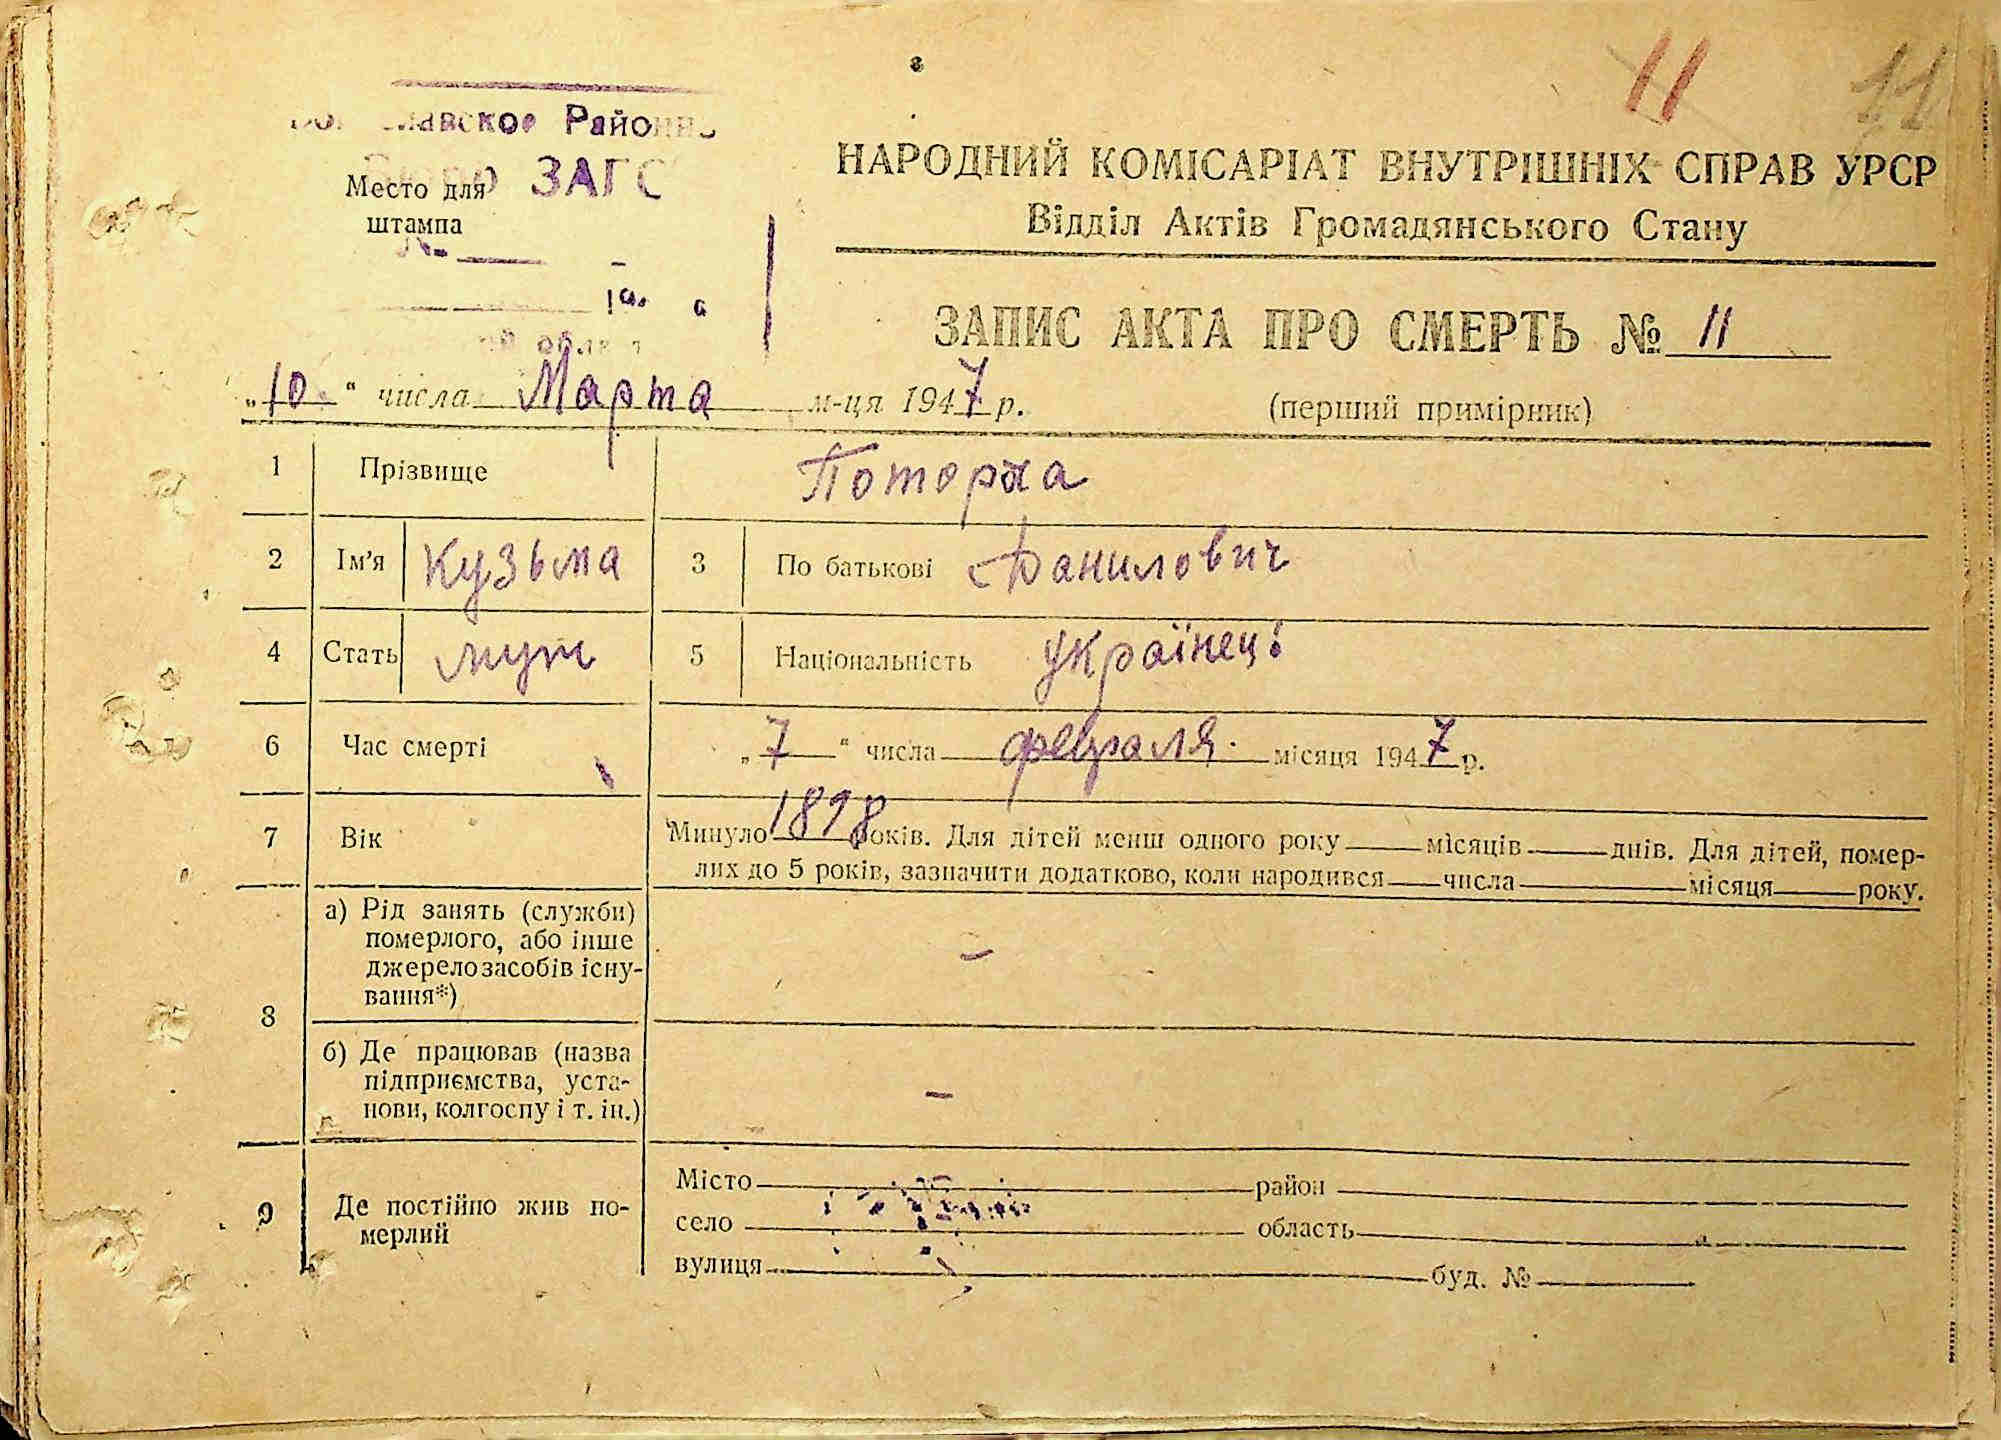 11 11
Районн
ЗАГС
Место для
штампа
№
НАРОДНИЙ КОМІСАРІАТ ВНУТРІШНІХ СПРАВ УРСР
Відділ Актів Громадянського Стану
ЗАПИС АКТА ПРО СМЕРТЬ № 11
„10“ числа Марта м-ця 1947 р. (перший примірник)
1 Прізвище
2 Ім'я Кузьма 3 По батькові Данилович
4 Стать муж 5 Національність українець
6 Час смерті „7“ числа февраля місяця 1947 р.
7 Вік Минуло 1898 років. Для дітей менш одного року місяців днів. Для дітей, помер-
лих до 5 років, зазначити додатково, коли народився числа місяця року.
8 а) Рід занять (служби)
померлого, або інше
джерело засобів існу-
вання*)
–
б) Де працював (назва
підприємства, уста-
нови, колгоспу і т. ін.)
–
9 Де постійно жив по-
мерлий
Місто район
село область
вулиця буд. №